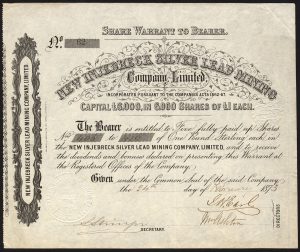 SHARE WARRANT TO BEARER.
No. 62
NEW INJEBRECK SILVER LEAD MINING
Company, Limited.
INCORPORATED PURSUANT TO THE COMPANIES ACTS 1862-67.
CAPITAL £6,000, IN 6,000 SHARES OF £1 EACH.
The Bearer is entitled to Five fully paid up Shares
of One Pound Sterling each in
the NEW INJEBRECK SILVER LEAD MINING COMPANY, LIMITED, and to receive
the dividends and bonuses declared on presenting this Warrant at
the Registered Offices of the Company.
Given under the Common Seal of the said Company,
the 24th day of 1873
SECRETARY.
DIRECTORS
NEW INJEBRECK SILVER LEAD MINING COMPANY, LIMITED